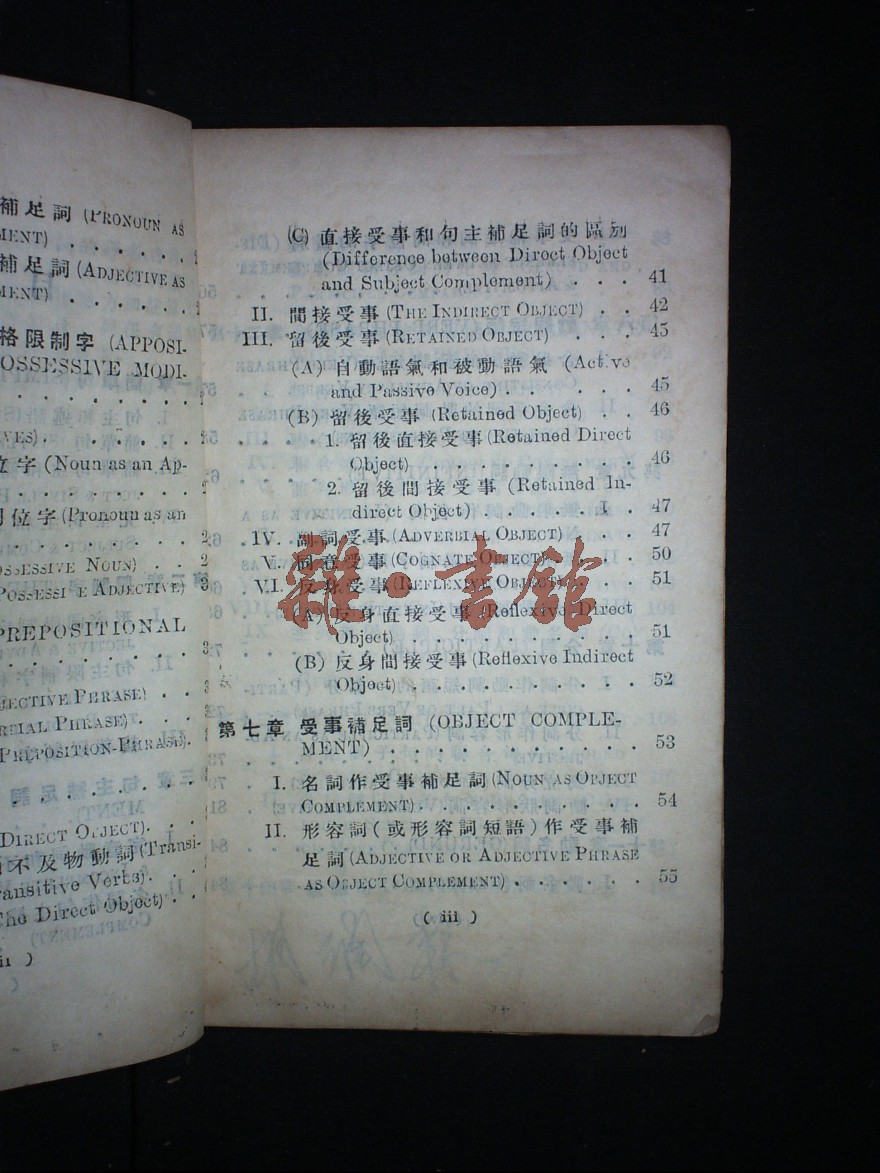 補足詞 (PRONOUN AS
MENT)
補足詞 (ADJECTIVE AS
MENT)
格限制字 (APPOSI-
POSSESSIVE MODI-
位字 (Noun as an Ap-
同位字 (Pronoun as an
POSSESSIVE NOUN)
PREPOSITIONAL
ADJECTIVE PHRASE)
PREPOSITION-PHRASE).
DIRECT OBJECT).
不及物動詞 (Transi-
ransitive Verbs).
The Direct Object)
(C) 直接受事和句主補足詞的區別
(Difference between Direct Object
and Subject Complement) . . . 41
II. 間接受事 (THE INDIRECT OBJECT) . . 42
III. 留後受事 (RETAINED OBJECT) . . . 45
(A) 自動語氣和被動語氣 (Active
and Passive Voice) . . . . . 45
(B) 留後受事 (Retained Object) . . 46
1. 留後直接受事 (Retained Direct
Object) . . . . . . . . 46
2. 留後間接受事 (Retained In-
direct Object) . . . . . . 47
IV. 副詞受事 (ADVERBIAL OBJECT) . . . 47
V. 同意受事 (COGNATE OBJECT) . . . . 50
VI. 反身受事 (REFLEXIVE OBJECT) . . . 51
(A) 反身直接受事 (Reflexive Direct
Object) . . . . . . . . . 51
(B) 反身間接受事 (Reflexive Indirect
Object) . . . . . . . . . 52
第七章 受事補足詞 (OBJECT COMPLE-
MENT) . . . . . . . . . . . 53
I. 名詞作受事補足詞 (NOUN AS OBJECT
COMPLEMENT) . . . . . . . . 54
II. 形容詞 (或形容詞短語) 作受事補
足詞 (ADJECTIVE OR ADJECTIVE PHRASE
AS OBJECT COMPLEMENT) . . . . . 55
( iii )
雜·書館